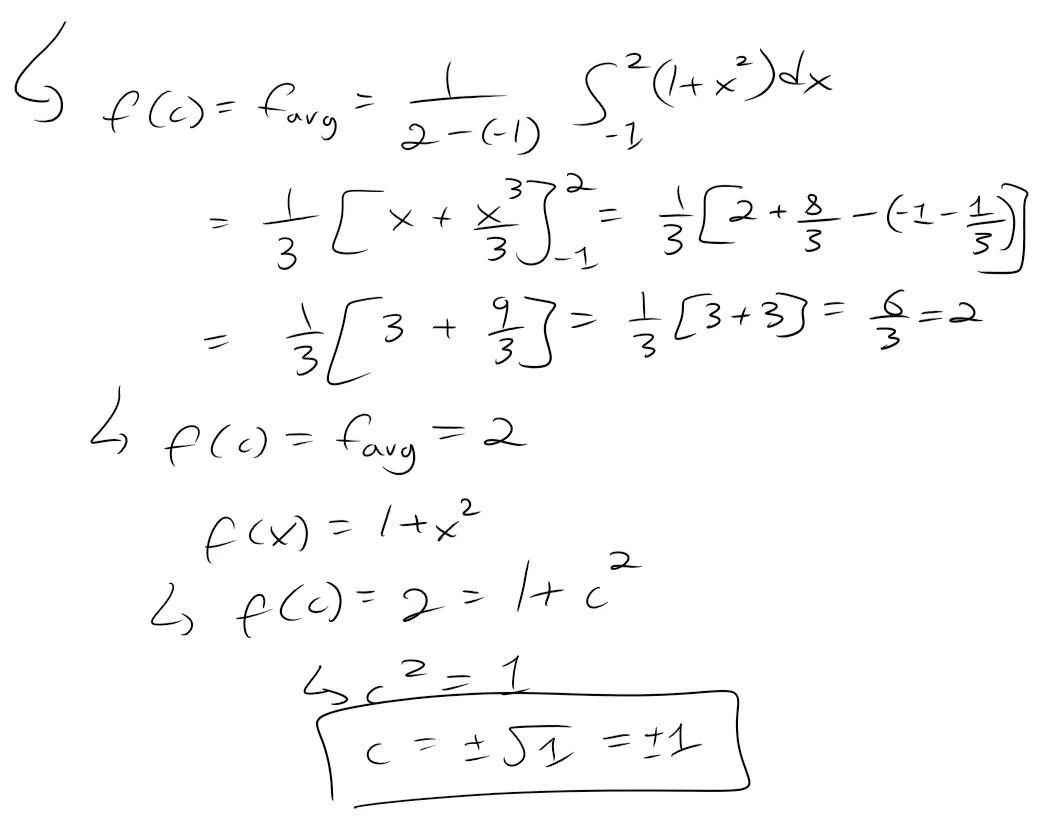 ↳ f(c) = f_avg = 1/(2-(-1)) ∫_{-1}^{2} (1+x²)dx
= 1/3 [x + x³/3]_{-1}^{2} = 1/3 [2 + 8/3 - (-1 - 1/3)]
= 1/3 [3 + 9/3] = 1/3 [3+3] = 6/3 = 2
↳ f(c) = f_avg = 2
f(x) = 1+x²
↳ f(c) = 2 = 1+c²
↳ c² = 1
c = ±√1 = ±1